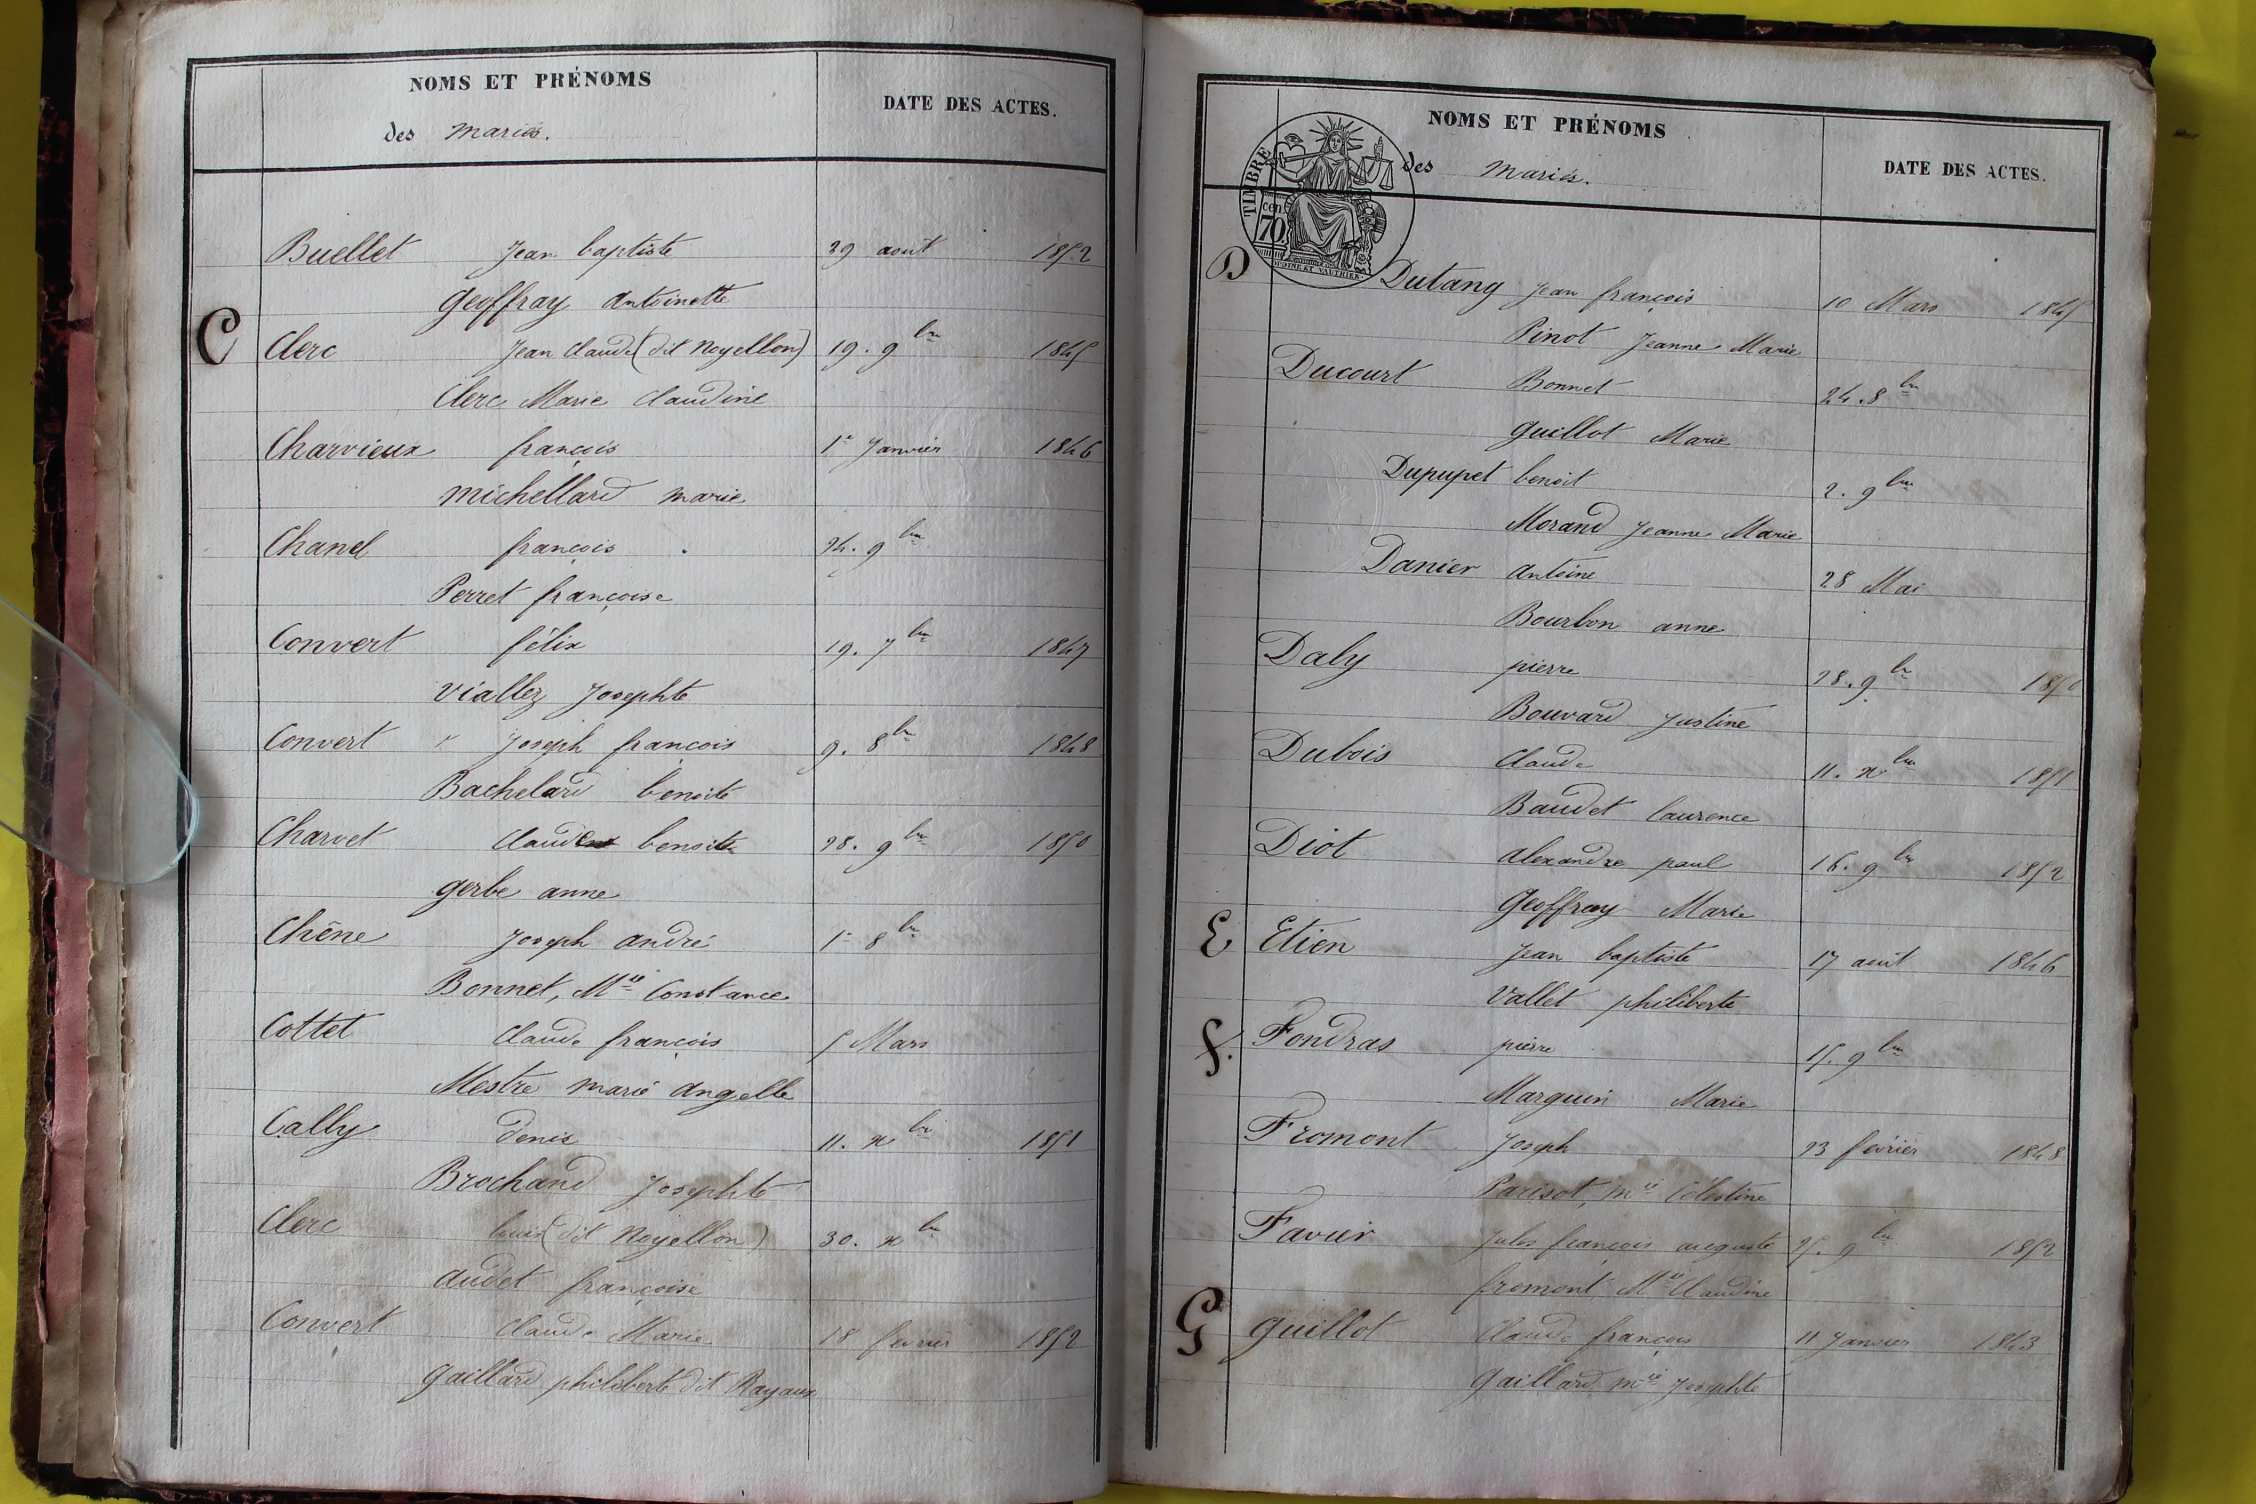 NOMS ET PRÉNOMS
DATE DES ACTES.
des mariés.
Buellet Jean baptiste 29 août 1852
Geoffray antoinette
C Clerc Jean Claude (dit Noyellon) 19. 9bre 1845
Clerc Marie Claudine
Charvieux françois 1er Janvier 1846
michellard marie
Chanel françois 24. 9bre
Perret françoise
Convert félix 19. 7bre 1847
Viallez Josephte
Convert Joseph françois 9. 8bre 1848
Bachelard benoite
Charvet Claude benoit 28. 9bre 1850
gerbe anne
Chêne Joseph andré 1er 8bre
Bonnet, Mie Constance
Cottet Claude françois 5 Mars
Mestre marie angelle
Cally denis 11. xbre 1851
Brochand Josephte
Clerc louis (dit Noyellon) 30. xbre
audet françoise
Convert Claude Marie 18 fevrier 1852
Gaillard philiberte dit Rayaux
NOMS ET PRÉNOMS
DATE DES ACTES.
des mariés.
TIMBRE
70 cen
OUDINE ET VAUTHIER
D Dutang Jean françois 10 Mars 1845
Pinot Jeanne Marie
Ducourt Bonnet 24. 8bre
guillot Marie
Dupupet benoit 2. 9bre
Morand Jeanne Marie
Danier antoine 28 Mai
Bourbon anne
Daly pierre 28. 9bre 1850
Bouvard Justine
Dubois Claude 11. xbre 1851
Baudet laurence
Diot alexandre paul 16. 9bre 1852
Geoffray Marie
E Etien Jean baptiste 17 août 1846
Vallet philiberte
f. Fondras pierre 15. 9bre
Marguin Marie
Fromont Joseph 23 février 1848
Parisot, mie Célestine
Favier Jules françois auguste 25. 9bre 1852
fromont Mie Claudine
G guillot Claude françois 11 Janvier 1843
Gaillard mie Josephte